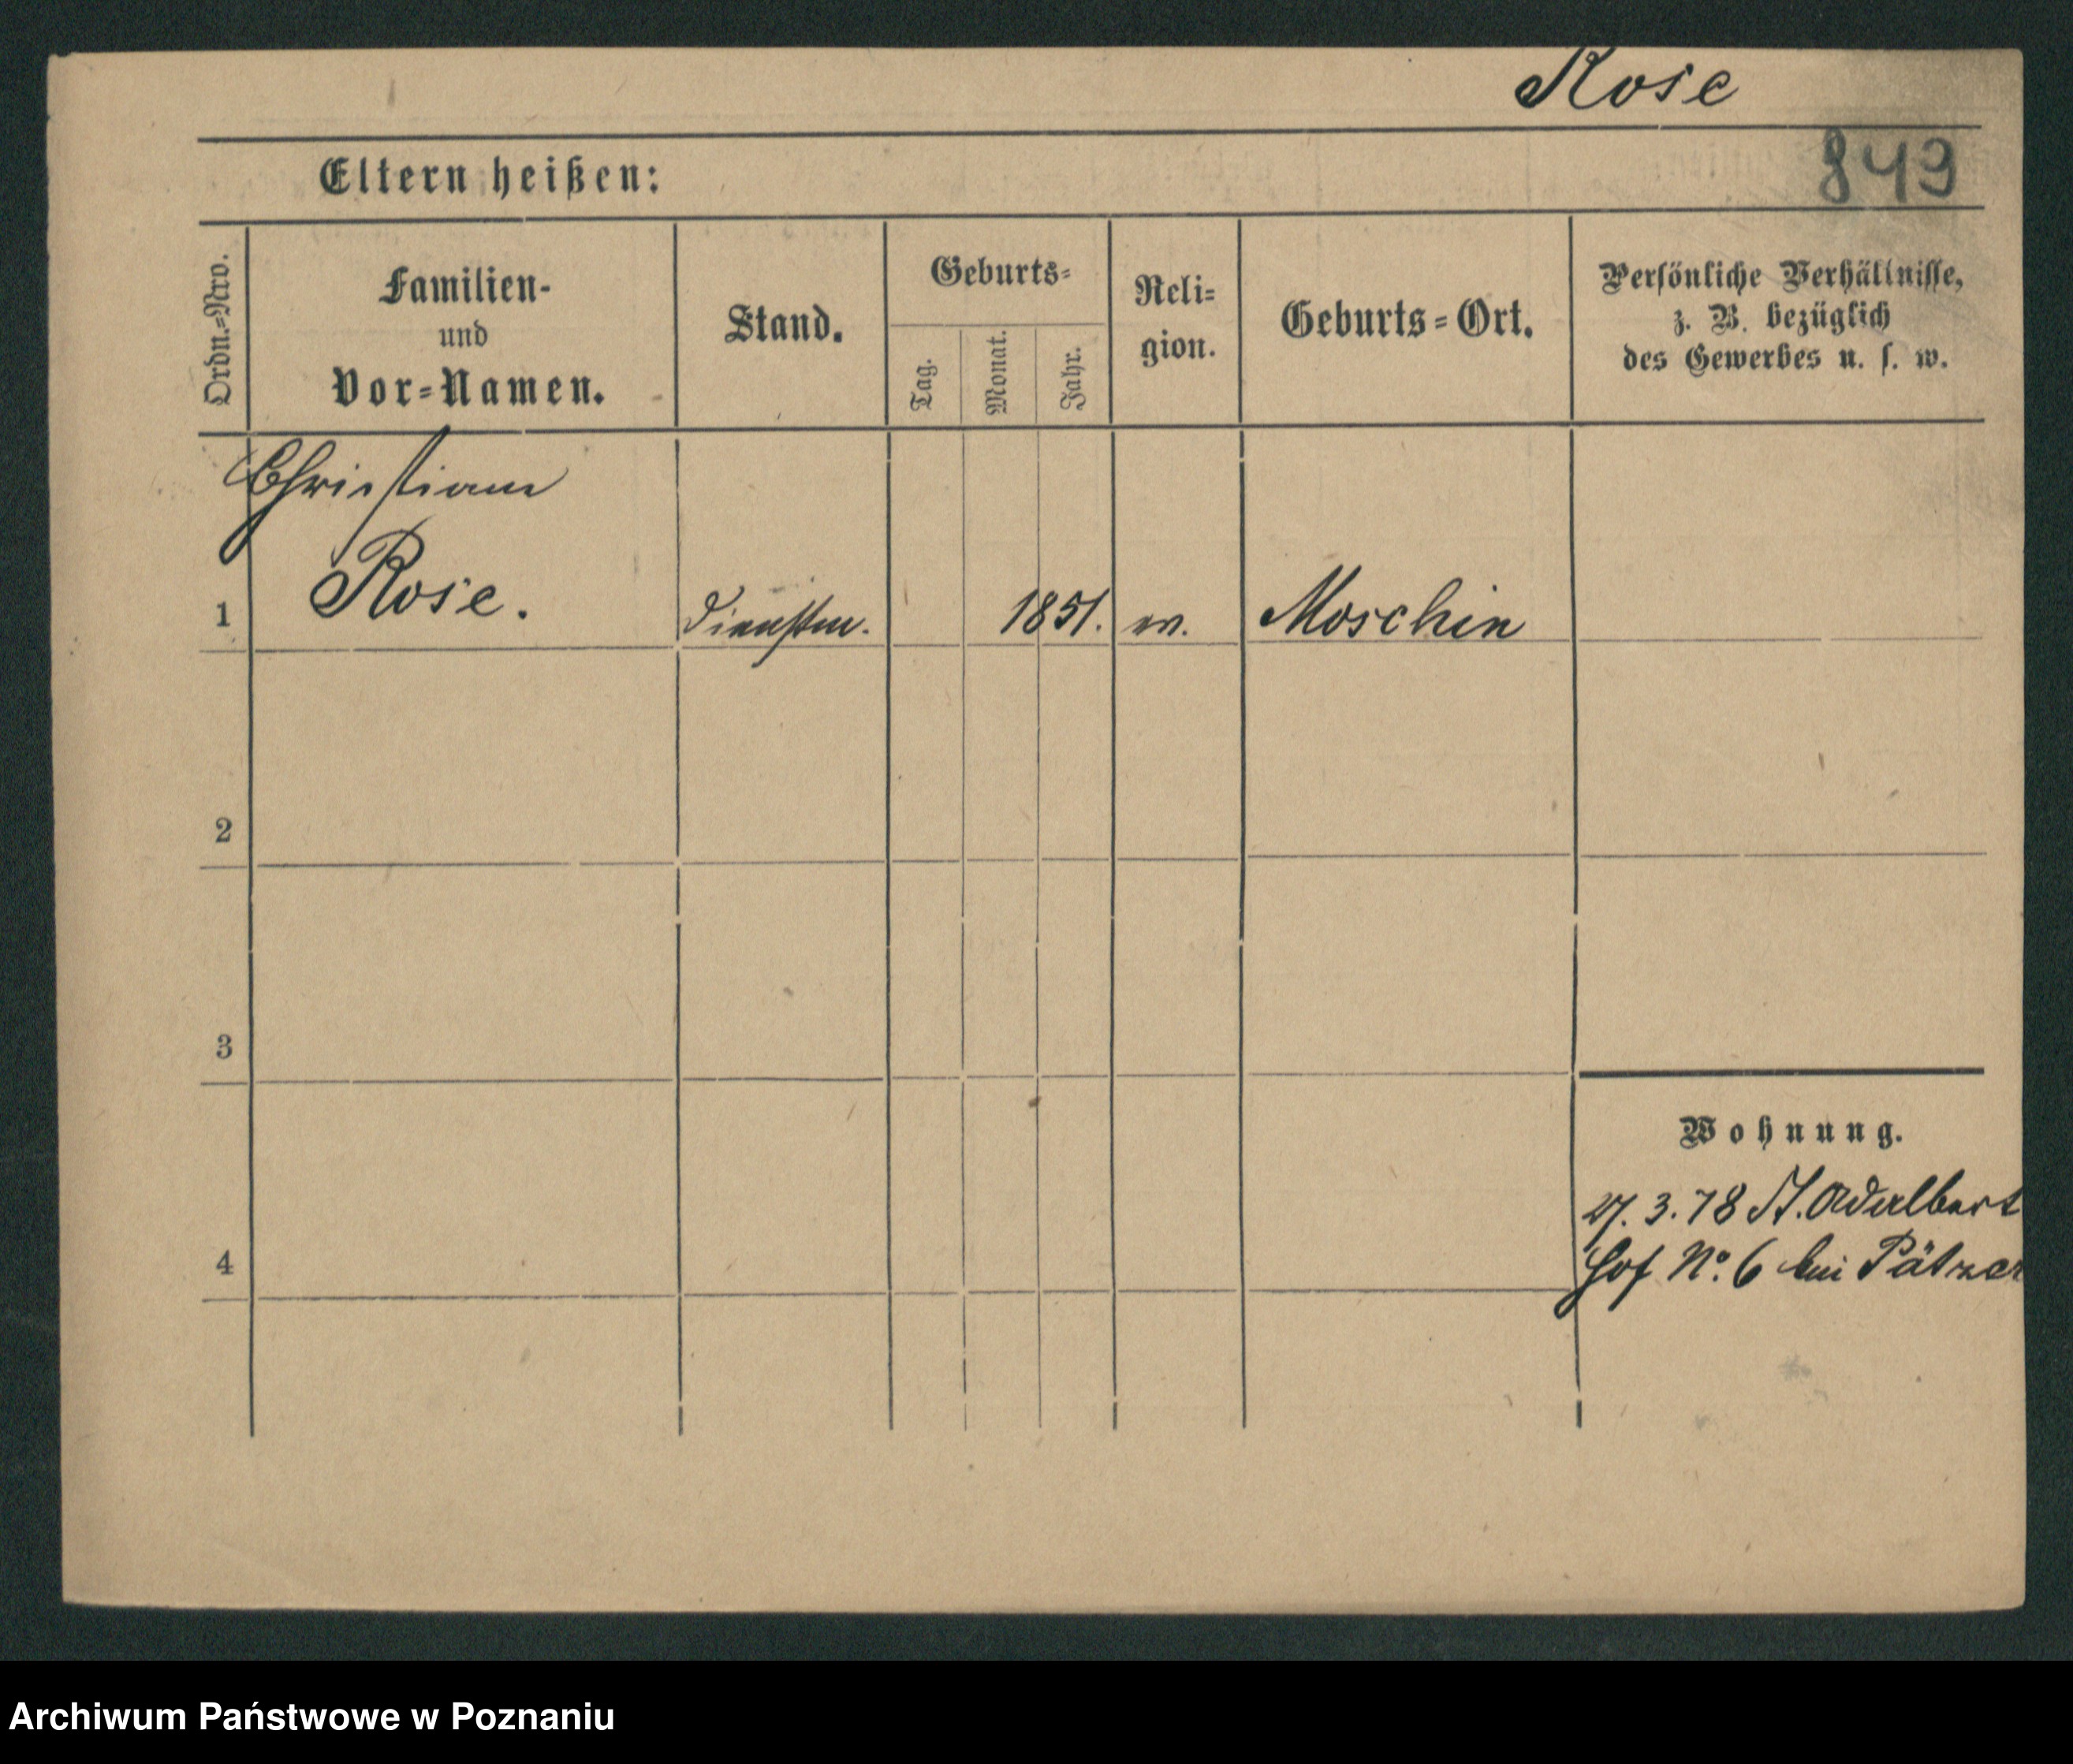 Rose
849
Eltern heißen:
Ordn.=Nro.
Familien-
und
Vor=Namen.
Stand.
Geburts=
Tag.
Monat.
Jahr.
Reli=
gion.
Geburts=Ort.
Persönliche Verhältnisse,
z. B. bezüglich
des Gewerbes u. s. w.
Christian
1 Rose. Dienstm. 1851. Moschin
2
3
Wohnung.
27. 3. 78 St. Adalbert
4
Hof No. 6 bei Pätzer
Archiwum Państwowe w Poznaniu